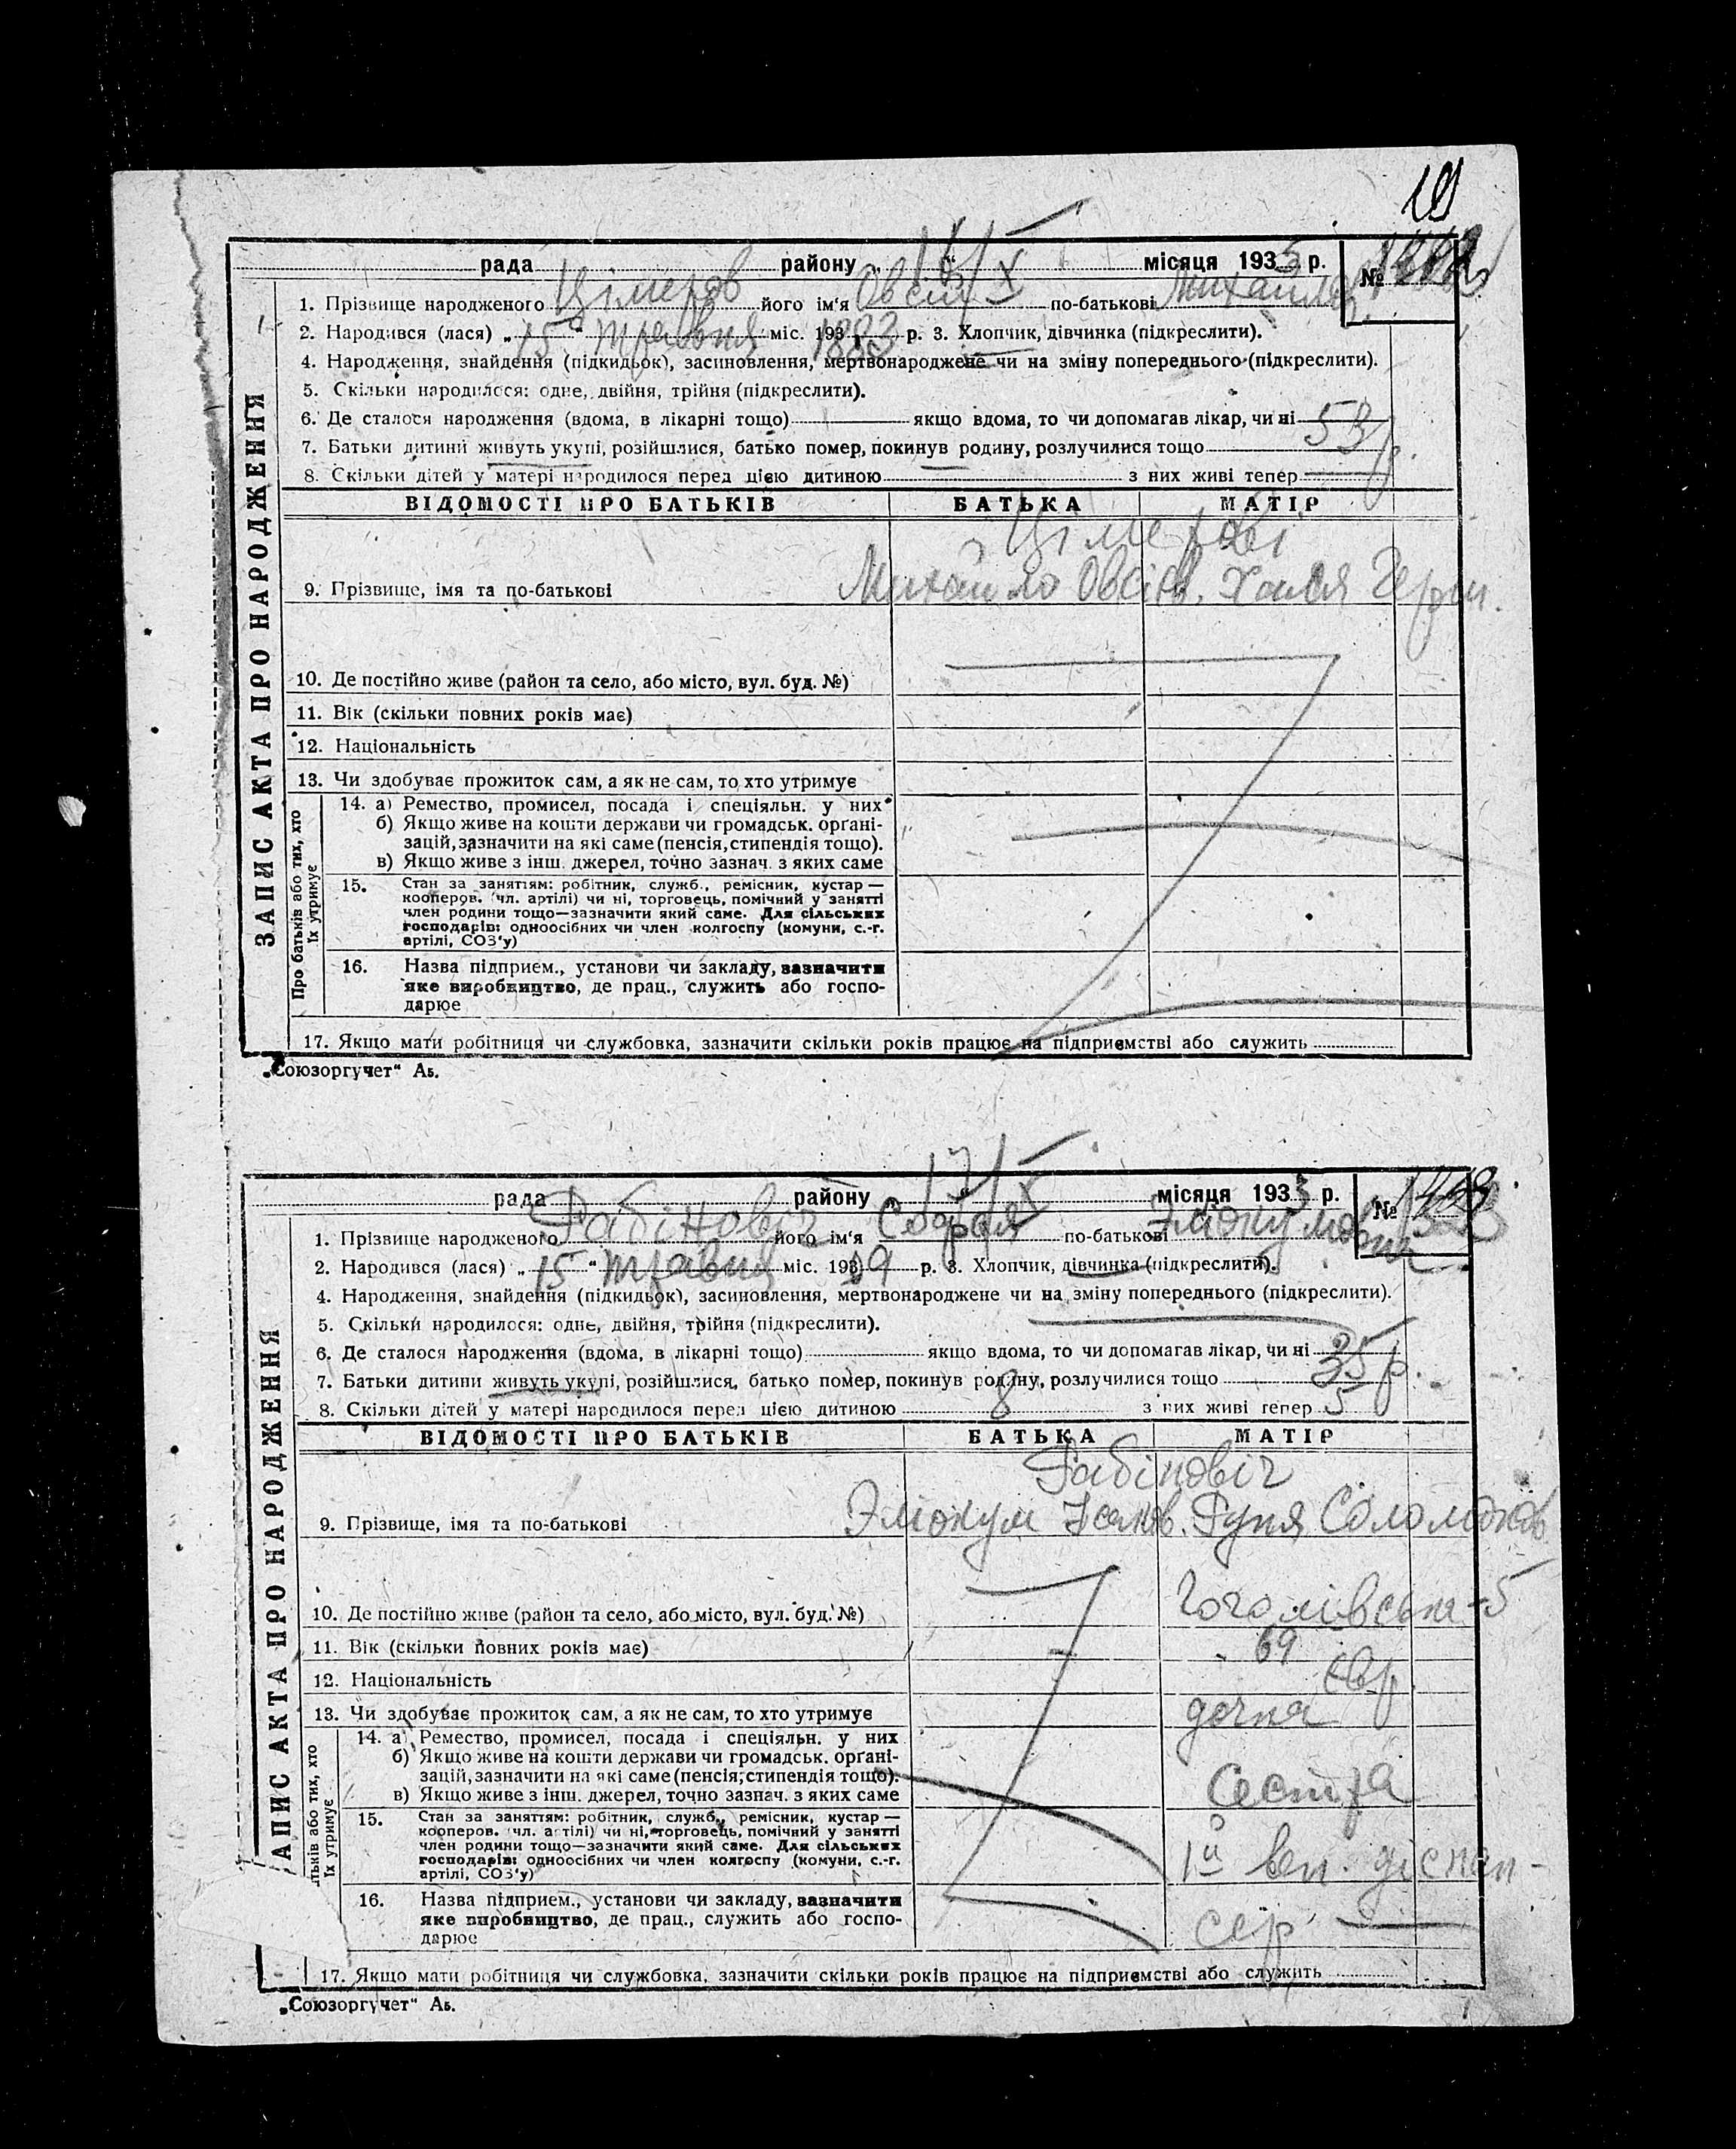 19
рада района „ “ місяця 1933 р. №
1. Прізвище народженого Цімеров його ім'я Овсій по-батькові Михайлов.
2. Народився (лася) „15“ травня міс. 193 1883 р. 3. Хлопчик, дівчинка (підкреслити).
4. Народження, знайдення (підкидьок), засиновлення, мертвонароджене чи на зміну попереднього (підкреслити).
5. Скільки народилося: одне, двійня, трійня (підкреслити).
6. Де сталося народження (вдома, в лікарні тощо) якщо вдома, то чи допомагав лікар, чи ні 53 р.
7. Батьки дитини живуть укупі, розійшлися, батько помер, покинув родину, розлучилися тощо
8. Скільки дітей у матері народилося перед цією дитиною з них живі тепер
ВІДОМОСТІ ПРО БАТЬКІВ БАТЬКА МАТІР
Цімерові
9. Прізвище, імя та по-батькові Михайло Овсіїв. Хая Герш.
10. Де постійно живе (район та село, або місто, вул. буд. №)
11. Вік (скільки повних років має)
12. Національність
13. Чи здобуває прожиток сам, а як не сам, то хто утримує
14. а) Ремество, промисел, посада і спеціяльн. у них
б) Якщо живе на кошти держави чи громадськ. орґані-
зацій, зазначити на які саме (пенсія, стипендія тощо).
в) Якщо живе з інш. джерел, точно зазнач. з яких саме
15. Стан за заняттям: робітник, служб., ремісник, кустар —
кооперов. (чл. артілі) чи ні, торговець, помічний у занятті
член родини тощо—зазначити який саме. Для сільських
господарів: одноосібних чи член колгоспу (комуни, с.-г.
артілі, СОЗ'у)
16. Назва підприєм., установи чи закладу, зазначити
яке виробництво, де прац., служить або госпо-
дарює
17. Якщо мати робітниця чи службовка, зазначити скільки років працює на підприємстві або служить
ЗАПИС АКТА ПРО НАРОДЖЕННЯ
Про батьків або тих, хто
їх утримує
„Союзоргучет“ Аь.
рада району „ “ місяця 1933 р. №
1. Прізвище народженого Рабіновіч його ім'я Софья по-батькові
2. Народився (лася) „15“ травня міс. 193 р. 3. Хлопчик, дівчинка (підкреслити).
4. Народження, знайдення (підкидьок), засиновлення, мертвонароджене чи на зміну попереднього (підкреслити).
5. Скільки народилося: одне, двійня, трійня (підкреслити).
6. Де сталося народження (вдома, в лікарні тощо) якщо вдома, то чи допомагав лікар, чи ні 35 р.
7. Батьки дитини живуть укупі, розійшлися, батько помер, покинув родину, розлучилися тощо
8. Скільки дітей у матері народилося перед цією дитиною 8 з них живі тепер 5
ВІДОМОСТІ ПРО БАТЬКІВ БАТЬКА МАТІР
Рабіновіч
9. Прізвище, імя та по-батькові Руня Соломонов
10. Де постійно живе (район та село, або місто, вул. буд. №) Гоголівська-5
11. Вік (скільки повних років має) 69
12. Національність євр.
13. Чи здобуває прожиток сам, а як не сам, то хто утримує дочка
14. а) Ремество, промисел, посада і спеціяльн. у них
б) Якщо живе на кошти держави чи громадськ. орґані-
зацій, зазначити на які саме (пенсія, стипендія тощо). Сестра
в) Якщо живе з інш. джерел, точно зазнач. з яких саме
15. Стан за заняттям: робітник, служб., ремісник, кустар —
кооперов. (чл. артілі) чи ні, торговець, помічний у занятті
член родини тощо—зазначити який саме. Для сільських 1й вен. діспан-
господарів: одноосібних чи член колгоспу (комуни, с.-г.
артілі, СОЗ'у)
16. Назва підприєм., установи чи закладу, зазначити
яке виробництво, де прац., служить або госпо- сер
дарює
17. Якщо мати робітниця чи службовка, зазначити скільки років працює на підприємстві або служить
АПИС АКТА ПРО НАРОДЖЕННЯ
тьків або тих, хто
їх утримує
„Союзоргучет“ Аь.